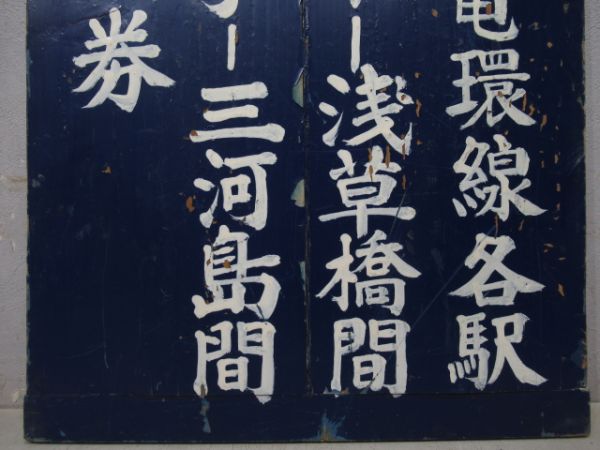 電環線各駅
ー浅草橋間
ー三河島間
券